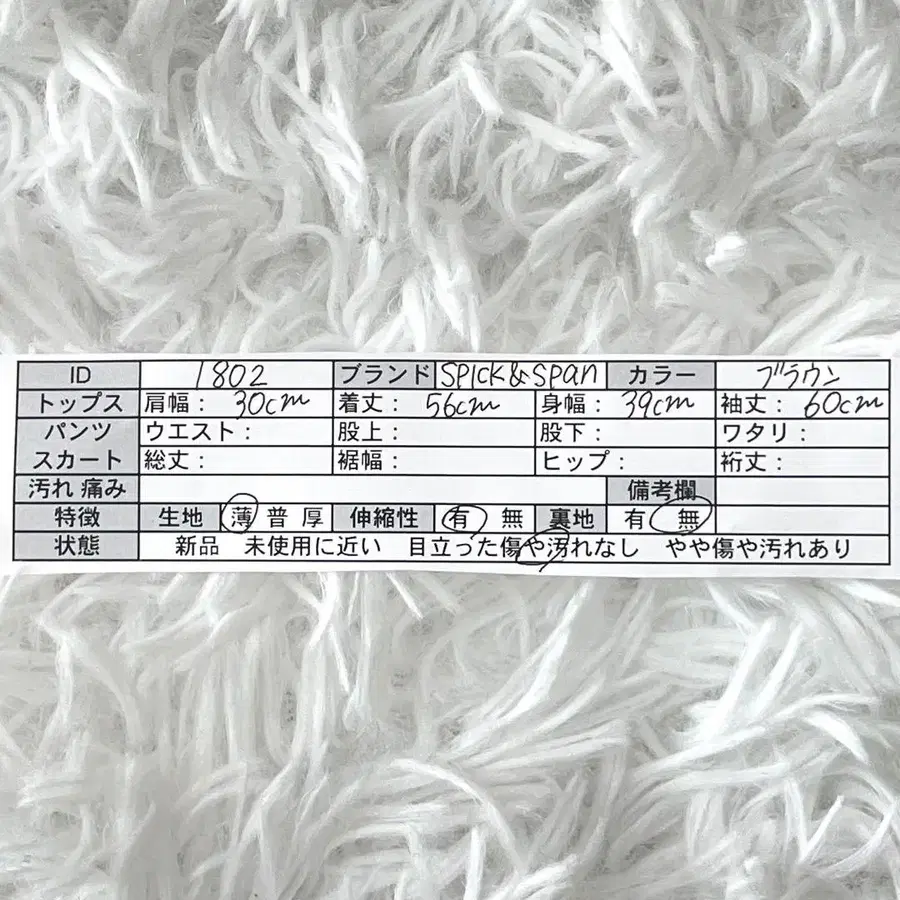 ID 1802 ブランド Spick&Span カラー ブラウン
トップス 肩幅： 30cm 着丈： 56cm 身幅： 39cm 袖丈： 60cm
パンツ ウエスト： 股上： 股下： ワタリ：
スカート 総丈： 裾幅： ヒップ： 裄丈：
汚れ 痛み 備考欄
特徴 生地 薄 普 厚 伸縮性 有 無 裏地 有 無
状態 新品 未使用に近い 目立った傷や汚れなし やや傷や汚れあり